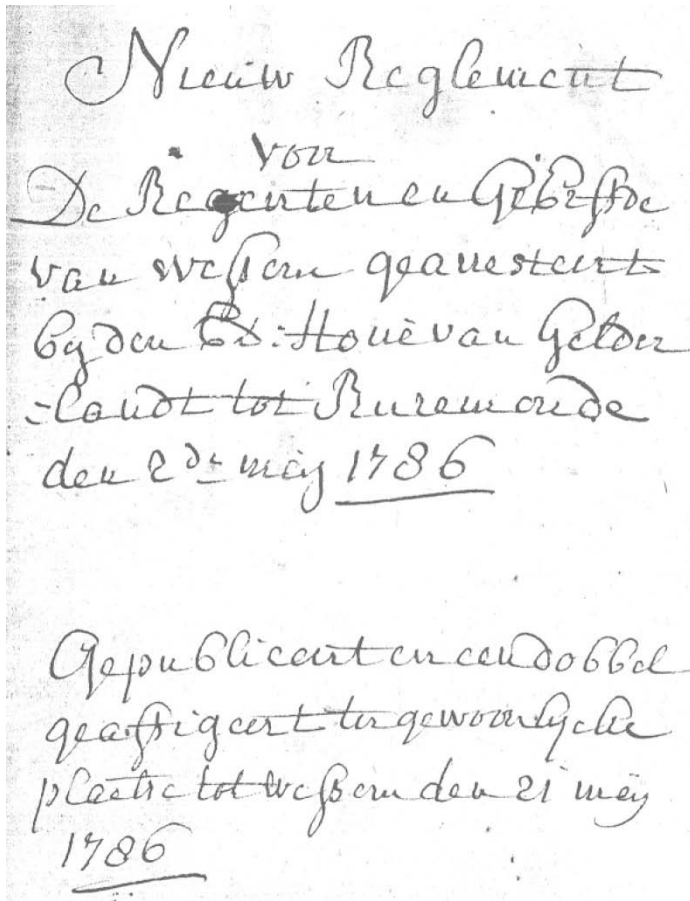 Nieuw Reglement
voor
De Regeerten en Geërfde
van Wessem gearresteert
by den Ed: Hove van Gelder
=landt tot Ruremonde
den 2de mey 1786
Gepubliceert en een dobbel
geaffigeert ter gewoonlycke
plaetse tot Wessem den 21 mey
1786